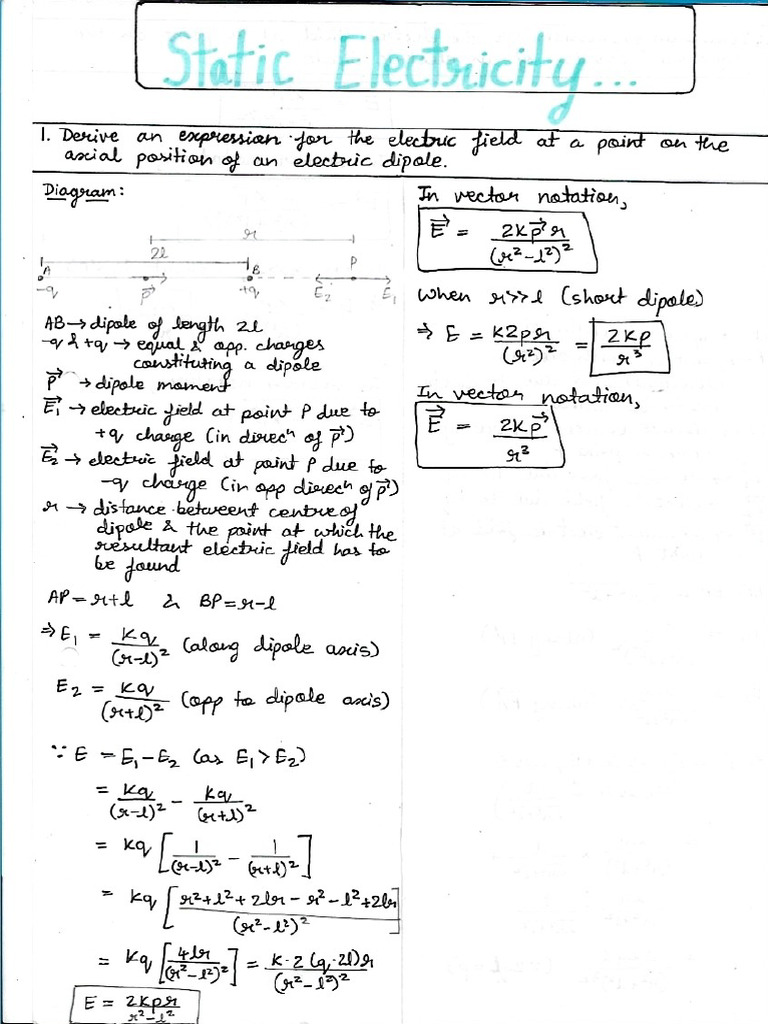 Static Electricity...
1. Derive an expression for the electric field at a point on the
axial position of an electric dipole.
Diagram:
r
2l
A
B
P
-q
p⃗
+q
E⃗₂
E⃗₁
AB → dipole of length 2l
-q & +q → equal & opp. charges
constituting a dipole
P⃗ → dipole moment
E⃗₁ → electric field at point P due to
+q charge (in direcⁿ of p⃗)
E⃗₂ → electric field at point P due to
-q charge (in opp direcⁿ of p⃗)
r → distance betweent centre of
dipole & the point at which the
resultant electric field has to
be found
AP = r+l & BP = r-l
⇒ E₁ = Kq/(r-l)² (along dipole axis)
E₂ = Kq/(r+l)² (opp to dipole axis)
∵ E = E₁-E₂ (as E₁>E₂)
= Kq/(r-l)² - Kq/(r+l)²
= Kq [1/(r-l)² - 1/(r+l)²]
= Kq [(r²+l²+2lr-r²-l²+2lr)/(r²-l²)²]
= Kq [4lr/(r²-l²)²] = K·2(q·2l)r/(r²-l²)²
E = 2Kpr/r²-l²
In vector notation,
E⃗ = 2Kp⃗r/(r²-l²)²
When r>>l (short dipole)
⇒ E = K2pr/(r²)² = 2Kp/r³
In vector notation,
E⃗ = 2Kp⃗/r³